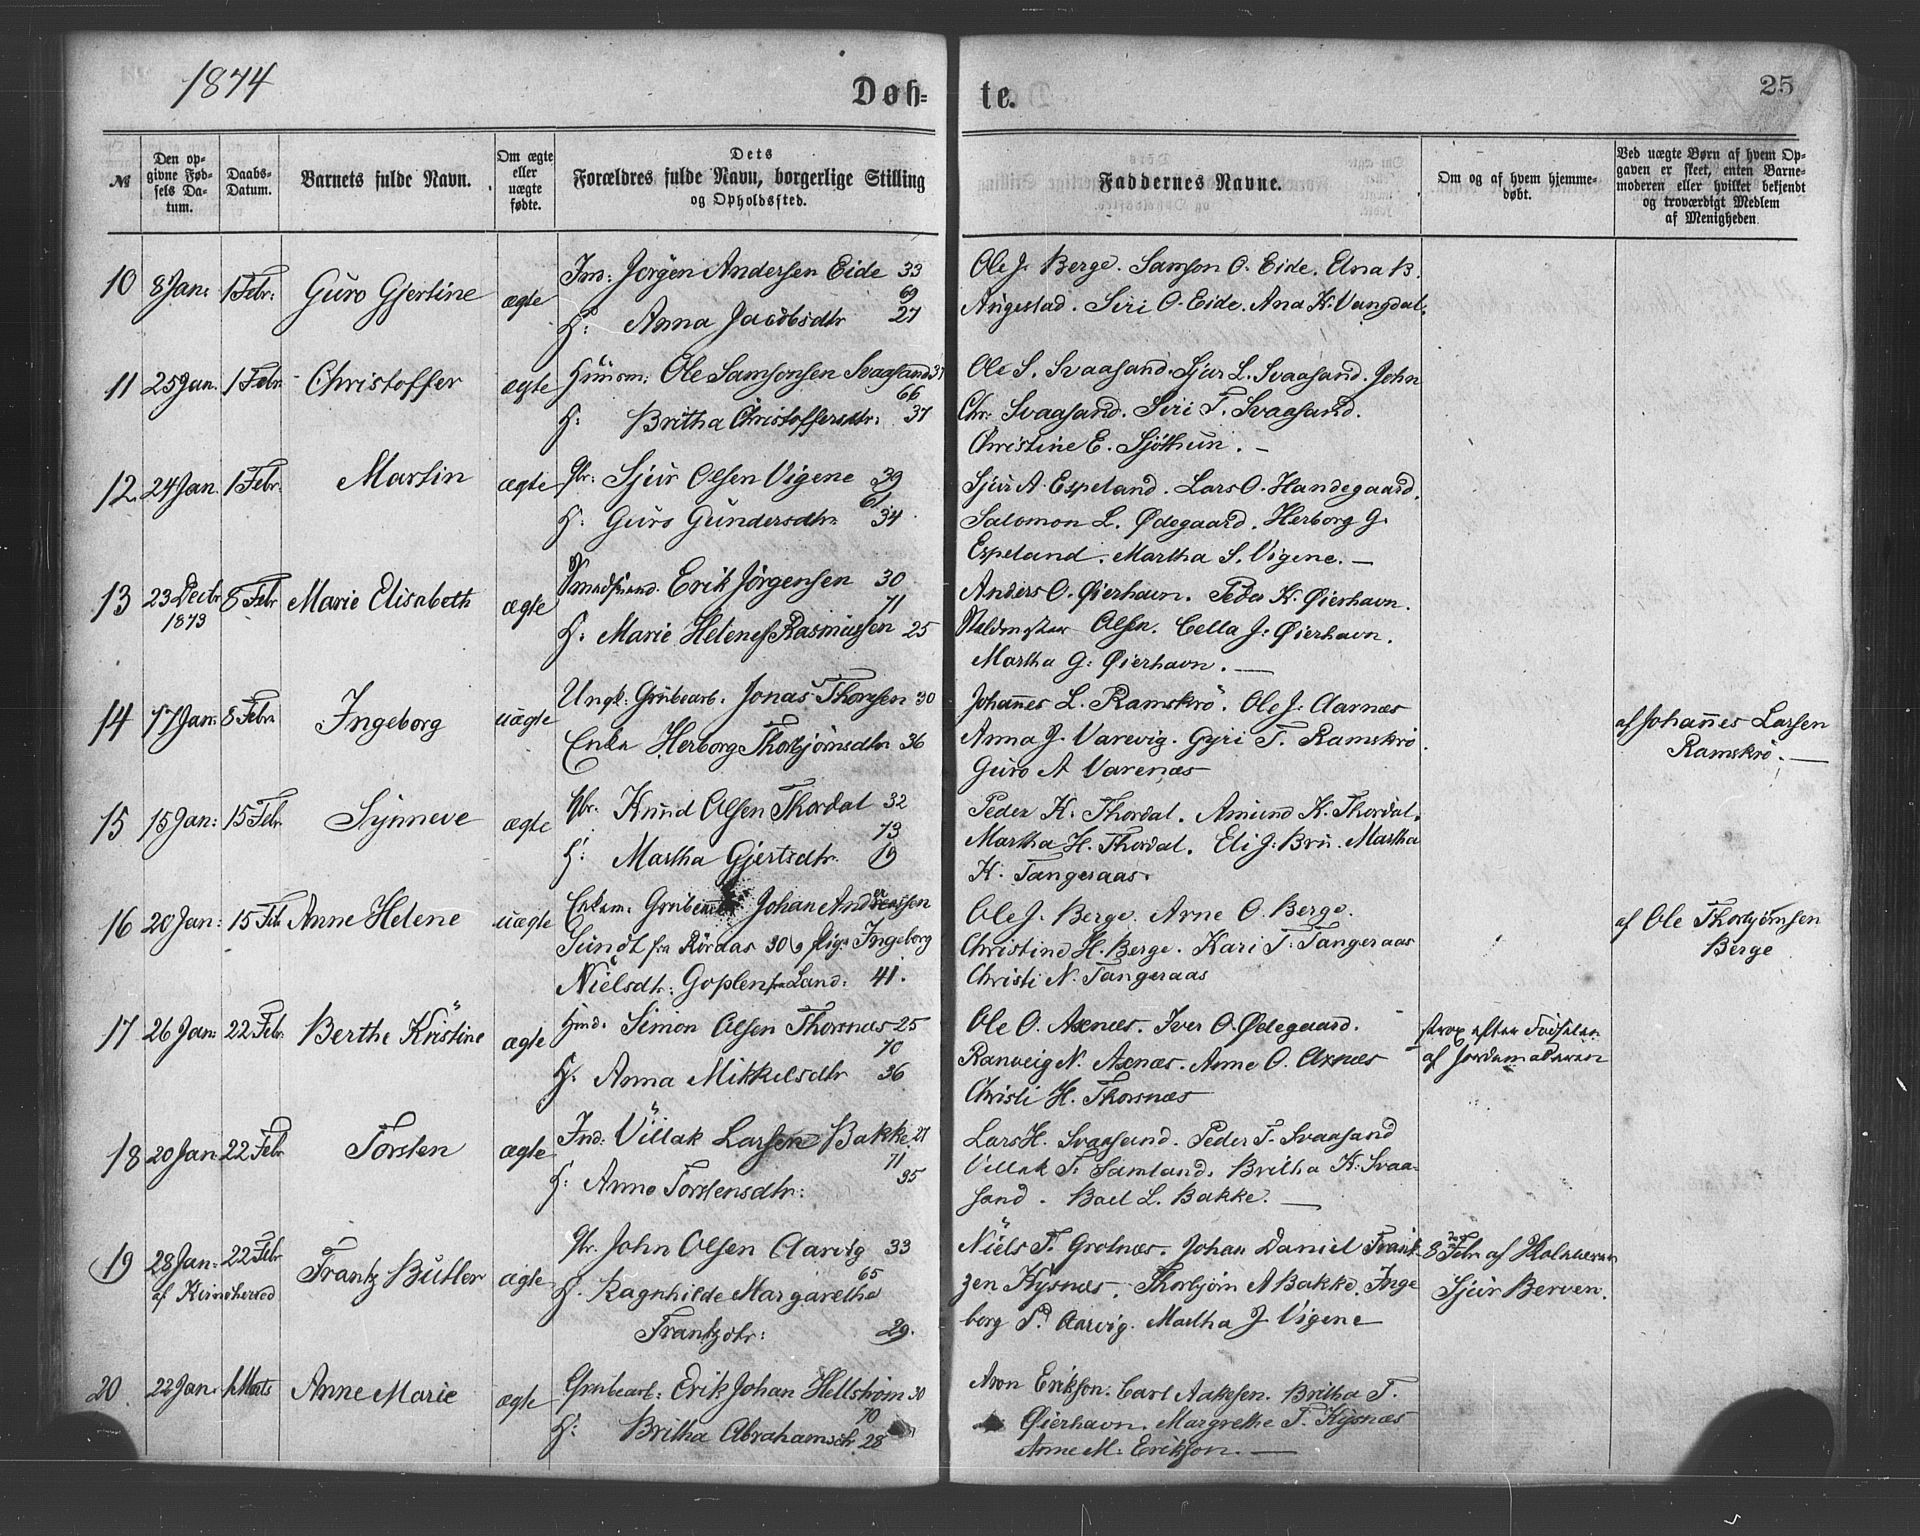 1874
Døb=
te.
25
№
Den opgivne Fødsels Datum.
Daabs-Datum.
Barnets fulde Navn.
Om ægte eller uægte fødte.
Dets Forældres fulde Navn, borgerlige Stilling og Opholdssted.
Faddernes Navne.
Om og af hvem hjemmedøbt.
Ved uægte Børn af hvem Opgaven er skeet, enten Barnemoderen eller hvilket bekjendt og troværdigt Medlem af Menigheden.
10 8 Jan: 1 Febr: Guro Gjertine ægte
Inds: Jørgen Andersen Eide 33
69
H: Anna Jacobsdtr 27
Ole J. Berge. Samson O. Eide. Elna B.
Augestad. Siri O. Eide. Ana K. Vangdal.
11 25 Jan. 1 Febr Christoffer ægte
Huusm: Ole Samsonsen Svaasand 37
66
H: Britha Christoffersdtr: 37
Ole S. Svaasand. Sjur L. Svaasand. John
Chr: Svaasand. Siri T. Svaasand.
Christine E. Sjøthun. —
12. 24 Jan. 1 Febr. Martin ægte
Gbr: Sjur Olsen Vigene 39
61
H: Guro Gundersdtr 34
Sjur A. Espeland. Lars O. Handegaard.
Salomon L. Ødegaard. Herborg G.
Espeland. Martha S. Vigene. —
13 23 Decbr 1873 8 Febr Marie Elisabeth ægte
Erik Jørgensen 30
71
H: Marie Helene Rasmussen 25
Anders O. Øierhavn. Peder K. Øierhavn.
Olsen. Cella J: Øierhavn.
Martha G: Øierhavn. —
14 17 Jan: 8 Febr Ingeborg uægte
Ungk: Grubearb. Jonas Thorsen 30
Enke Herborg Thorbjørnsdtr 36
Johannes L. Ramskrö. Ole J. Aarnæs
Anna J. Varevig. Gyri T. Ramskrö.
Guro A Varenæs
af Johannes Larsen
Ramskrö. —
15 15 Jan: 15 Febr. Synneve ægte
Gbr. Knud Olsen Thordal 32
73
H: Martha Gjertsdtr. 19
Peder K. Thordal. Amund K. Thordal.
Martha H. Thordal. Eli J. Bru. Martha
K. Tangeraas.
16 20 Jan: 15 Feb Anne Helene uægte
Enkem: Johan Anderssen
Sundt fra Röraas 30 og Pige Ingeborg
Nielsdtr: Goplen fra Land: 41.
Ole J. Berge. Arne O. Berge.
Christine H. Berge. Kari T. Tangeraas
Christi N. Tangeraas
af Ole Thorbjørnsen
Berge
17 26 Jan: 22 Febr. Berthe Kristine ægte
Hmd. Simon Olsen Thorsnæs 25
70
H. Anna Mikkelsdtr 36
Ole O. Axnæs. Iver O. Ødegaard.
Ranveig N. Axnæs. Anne O. Axnæs
Christi H. Thorsnæs
strax efter Födselen
af Jordemoderen
18 20 Jan 22 Febr Torsten ægte
Ind: Villak Larsen Bakke 27
71
H: Anna Torstensdtr: 35
Lars H. Svaasand. Peder T. Svaasand
Villak T. Samland. Britha K. Svaa-
sand. Boel L. Bakke. —
19 28 Jan: 22 Febr Frantz Butler ægte
af Kinsherred
Gbr. John Olsen Aarvig 33
65
H. Ragnhilde Margarethe
Frantzdtr: 29.
Niels T. Grotnæs. Johan Daniel Frant-
zen Kysnæs. Thorbjörn A Bakke. Inge
borg P. Aarvig. Martha J Vigene
8 Febr. af
Sjur Berven.
20. 22 Jan: 1 Marts Anne Marie ægte
Grubearb: Erik Johan Hellström 30
70
H: Britha Abrahamsdtr. 28
Aron Erikson. Carl Aakesen. Britha T.
Øierhavn. Margrethe T. Kysnæs
Anne M. Erikson. —